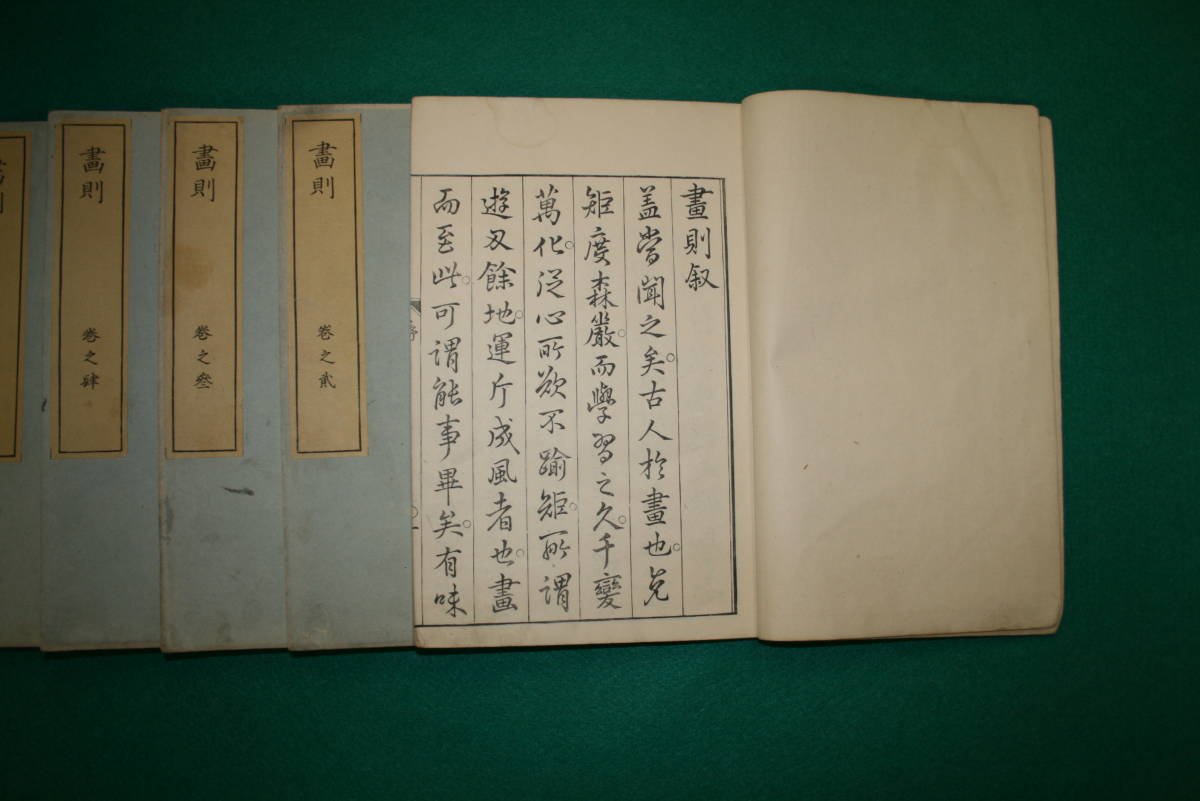 畫則叙
盖嘗聞之矣古人於畫也先
矩度森嚴而學習之久千變
萬化從心所欲不踰矩所謂
遊刃餘地運斤成風者也畫
而至此可謂能事畢矣有味
序
畫則
卷之貳
畫則
卷之叄
畫則
卷之肆